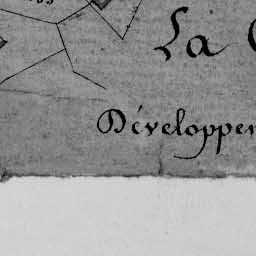 La
Développe